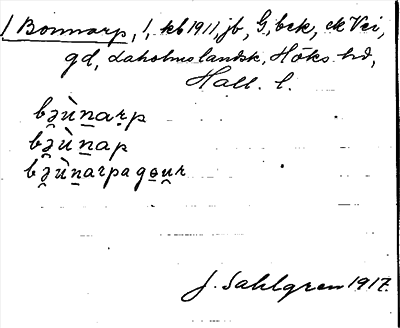 1 Bonnarp, 1, kb 1911, jb, G, bek, ek Vei,
gd, Laholmslandsk, Höks hd,
Hall. l.
bʒ̯ùn̲aṛp
bʒ̯ùn̲ap
bʒ̯ùn̲arpago̲u̯r
J. Sahlgren 1917.